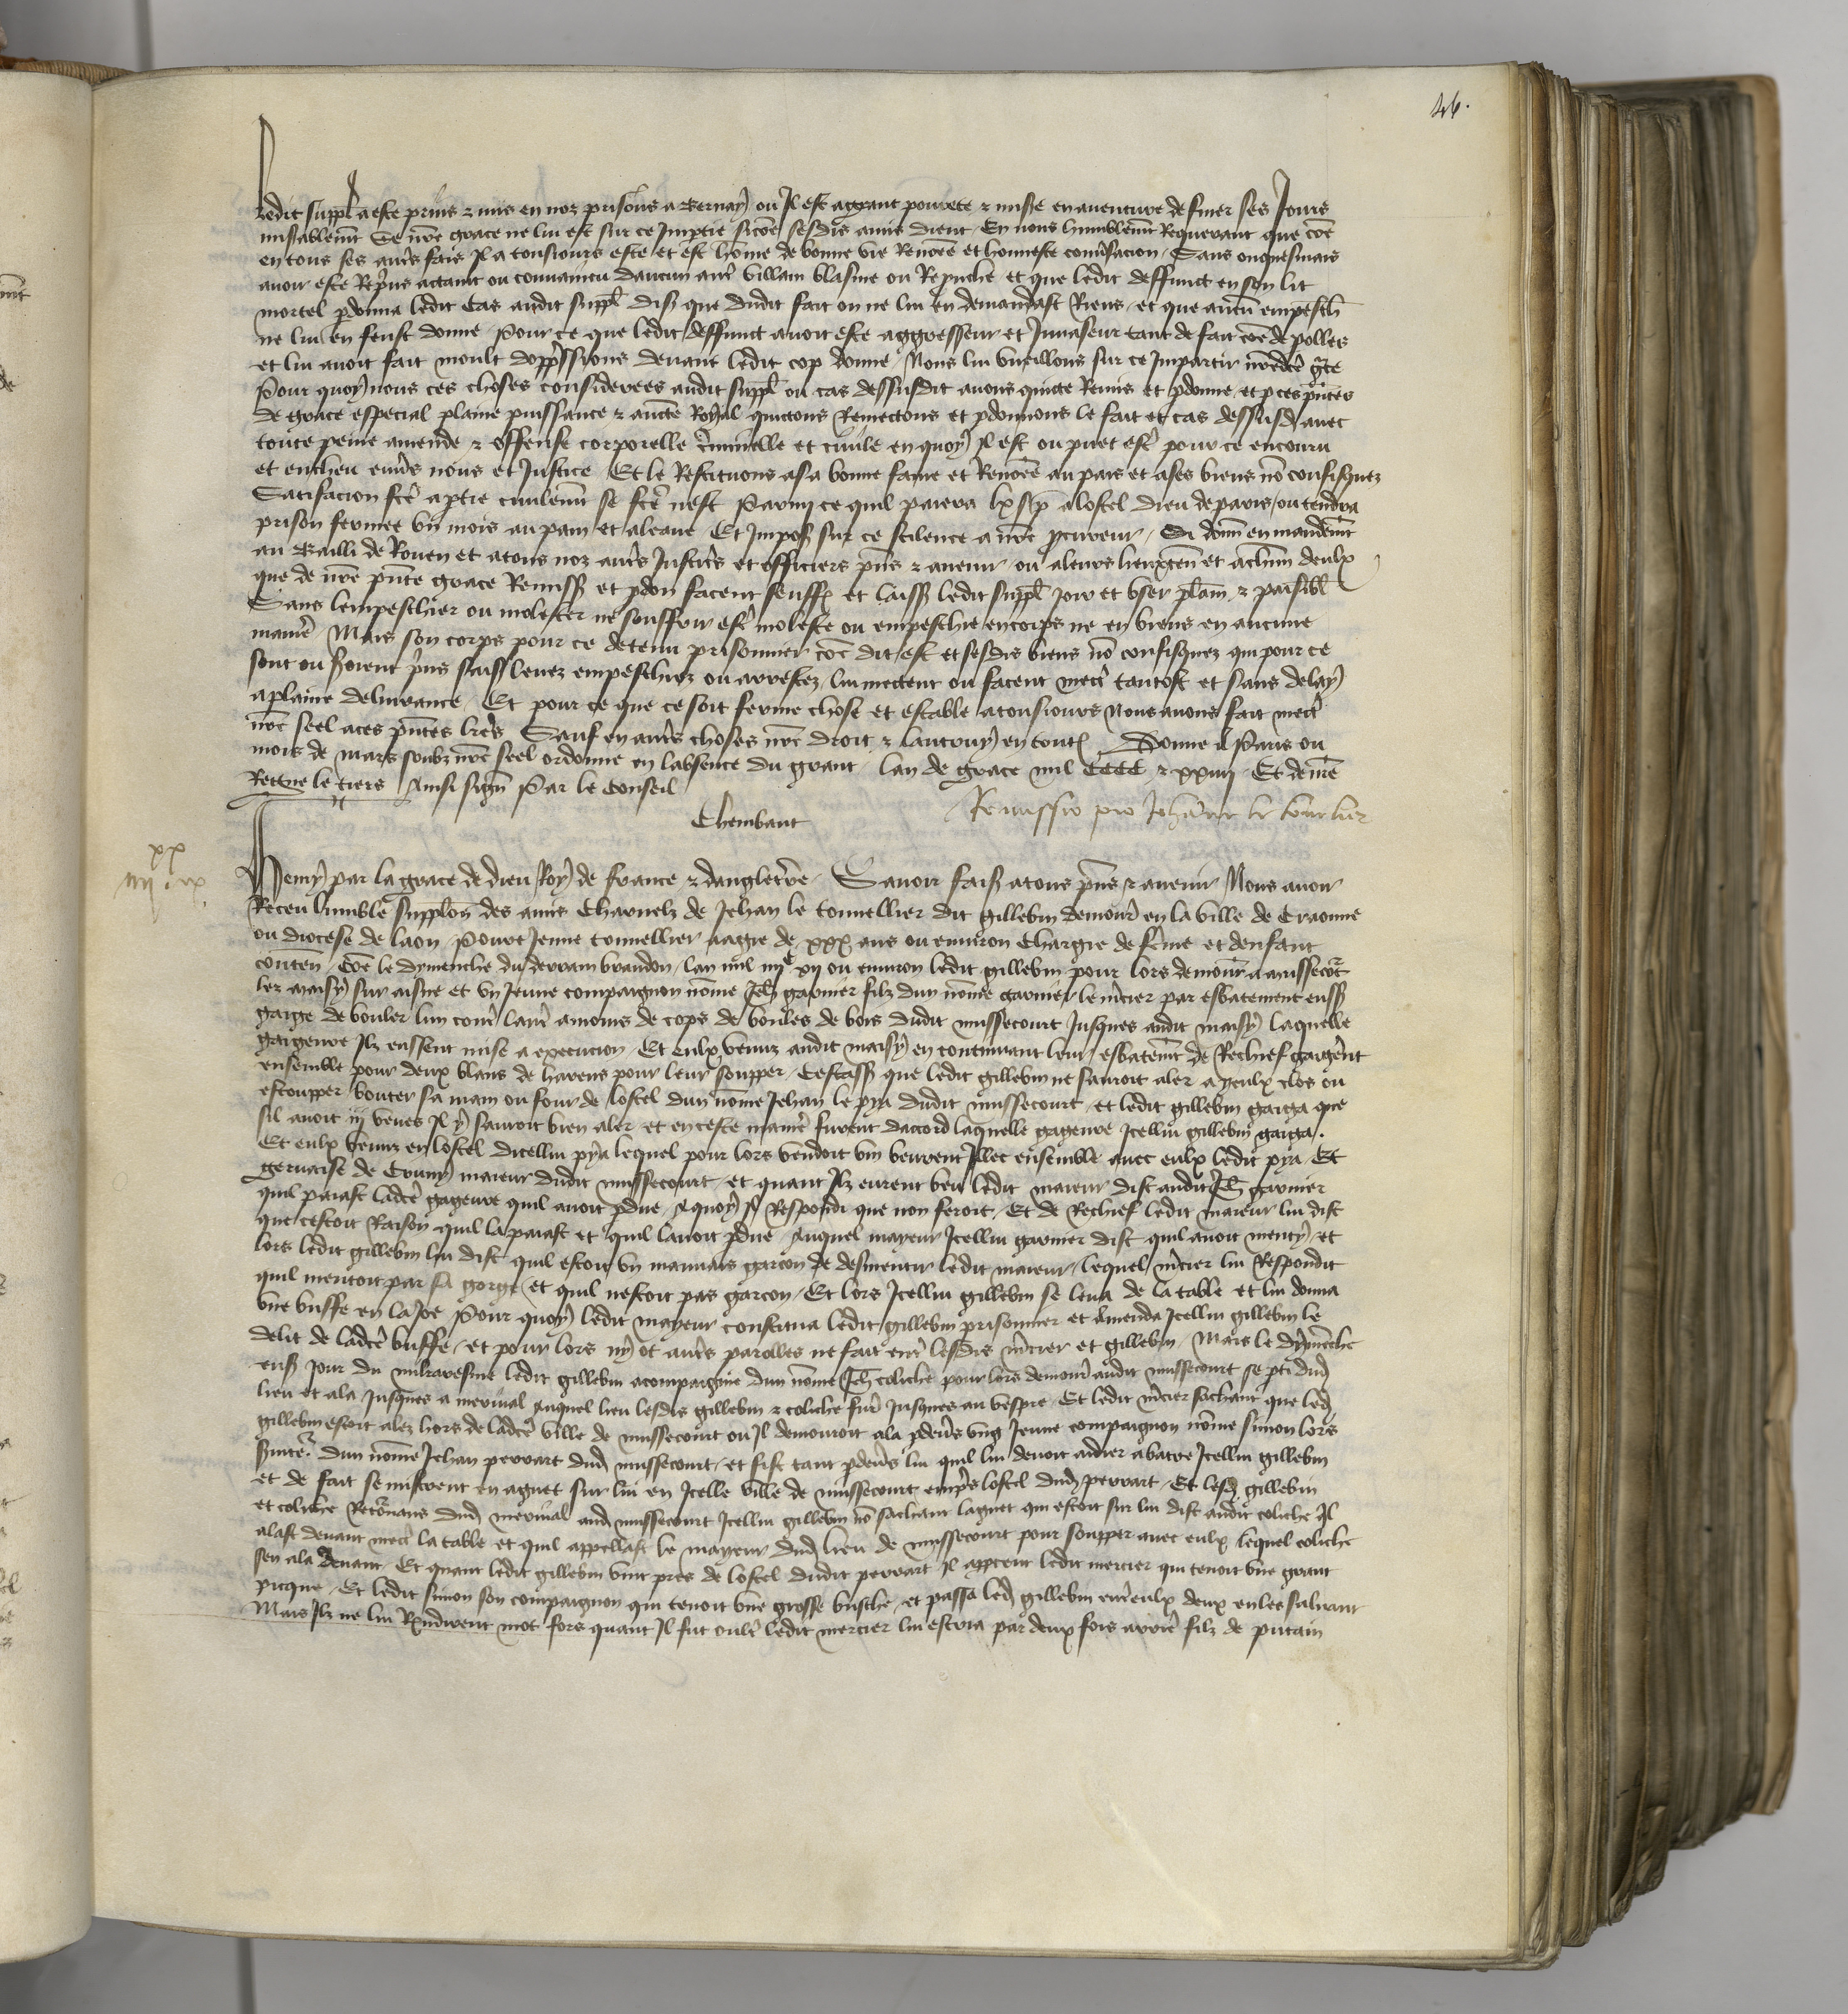 46.
Ledit suppl a este prins & mis en noz prisons a Bernay ou Il est a grant povrete & misere en aventure de finer ses Jours
misablemt Se nre grace ne lui est sur ce Imptie sicoe sesdis amis dient En nous humblemt Requerant que coe
en tous ses autres fais Il a tousiours este et est home de bonne vie Renomee et honneste conversacion Sans oncquesmais
avoir este Repris actaint ou convaincu daucun autre villain blasme ou Repruche et que ledit deffunct en son lit
mortel pdonna ledit Cas audit suppl dist que dudit fait on ne lui en demandast Riens et que aucun empesch
ne lui en feust donne Pour ce que ledit deffunct avoit este aggresseur et Invaseur tant de fait coe de polles
et lui avoit fait moult doppssions devant ledit cop donne Nous lui vueillons sur ce Impartir nredce gce
Pour quoy nous ces choses considerees audit suppl ou cas dessusdit avons quicte Remis et pdonne et p ces pntes
de grace especial plaine puissance & aucte Royal quictons Remectons et pdonnons le fait et cas dessusd avec
toute peine amende & offense corporelle criminelle et civile en quoy Il est ou puet estre pour ce encouru
et encheu envs nous et Justice Et le Restituons a sa bonne fame et Renomee au pais et a ses biens no confisquez
Satisfacion fcte a ptie civilemt se fcte nest Parmy ce quil paiera lx s p a lostel dieu de paris ou tendra
prison fermee un mois au pain et a leaue Et Impos sur ce scilence a nre pcureur Si donn en mandemt
au Bailli de Rouen et a tous noz autrs Justicrs et officiers pns & avenir ou a leurs lieuxten et a chun deulx
que de nre pnte grace Remiss et pdon facent seuffr et laiss ledit suppl joir et user plain & paisibl
Sans lempeschier ou molester ne souffrir estre moleste ou empeschie en corps ne en biens en aucune
maniere Mais son corps pour ce detenu prisonnier coe dit est et sesdis biens no confisquez qui pour ce
sont ou seroient prins saisis levez empeschiez ou arrestez lui mectent ou facent mectre tantost et sans delay
a plaine delivrance Et pour ce que ce soit ferme chose et estable a tousiours Nous avons fait mectre
nre seel a ces pntes lres Sauf en autrs choses nre droit & lautruy en toutes Donne a Paris ou
mois de Mars soubz nre seel ordonne en labsence du grant lan de grace mil CCCC & xxiiij Et de nre
Regne le tiers Ainsi signe Par le Conseil
Chembaut
Remissio pro Johanne le tonnelier
xx
iiij . ix.
Henry par la grace de dieu Roy de france & dangleterre Savoir faisons a tous pns & avenir Nous avoir
Receu lumble supplon des amis Charnelz de Jehan le tonnellier dit gillebin demour en la ville de Craonne
ou diocese de laon Povre Jeune tonnellier aagie de xxx ans ou environ Chargie de feme et denfant
conten Coe le dymenche du derrain brandon lan mil iiijc xij ou environ ledit gillebin pour lors demour a mussecourt
lez maisy sur aisne et un Jeune compaignon nome Jeh garnier filz dun nome garnier le mcier par esbatement eussent
gaige de bouler lun contre lautre a moins de cops de boules de bois dudit mussecourt Jusques audit maisy laquelle
gaigeure Ilz eussent mise a execucion Et eulx venuz audit maisy en continuant leur esbatemt de Rechief gaigerent
ensemble pour deux blans de harens pour leur soupper Cestass que ledit gillebin ne sauroit aler a yeulx clos ou
estoupper bouter sa main ou four de lostel dun nome Jehan le pya dudit mussecourt et ledit gillebin gaiga que
sil avoit iij venes Il y sauroit bien aler et en ceste maniere furent daccord laquelle gageure Icellui gillebin gaiga.
Et eulx venuz en lostel dicellui pya lequel pour lors vendoit vin beurent Illec ensemble avec eulx ledit pya Et
gervaise de Crouny maieur dudit mussecourt et quant Ilz eurent beu ledit maieur dist audit Jeh garnier
quil paiast ladce gageure quil avoit pdue A quoy Il Respondi que non feroit Et de Rechief ledit maieur lui dist
que cestoit Raison quil la paiast et quil lavoit pdue Auquel mayeur Icellui garnier dist quil avoit menty et
lors ledit gillebin lui dist quil estoit un mauvais garcon de desmentir ledit maieur lequel mcier lui Respondit
quil mentoit par sa gorge et quil nestoit pas garcon Et lors Icellui gillebin se leva de la table et lui donna
une buffe en la Joe Pour quoy ledit mayeur constitua ledit gillebin prisonnier et Amenda Icellui gillebin le
delit de ladce buffe et pour lors ny ot autrs parolles ne fait entre lesdis mcier et gillebin Mais le dymenche
ens jour du mikaresme ledit gillebin acompaignie dun nome Jeh coliche pour lors demour audit mussecourt se pti dud
lieu et ala Jusques a merival Auquel lieu lesdis gillebin & coliche furent Jusques au vespre Et ledit mcier sachant que led
gillebin estoit alez hors de ladce ville de mussecourt ou Il demouroit ala pdevs ung Jeune compaignon nome simon lors
svite dun nome Jehan perrart dud mussecourt et fist tant pdevs lui quil lui devoit aidier a batre Icellui gillebin
et de fait se mistrent en aguet sur lui en Icelle ville de mussecourt empres lostel dud perrart Et lesd gillebin
et coliche Retornans dud merival aud mussecourt Icellui gillebin no sachant laguet qui estoit sur lui dist audit coliche Il
alast devant mectre la table et quil appellast le mayeur dud lieu de mussecourt pour soupper avec eulx lequel coliche
sen ala devant Et quant ledit gillebin vint pres de lostel dudit perrart Il apperceut ledit mercier qui tenoit une grant
picque Et ledit simon son compaignon qui tenoit une grosse busche et passa led gillebin entre eulx deux en les saluant
Mais Ilz ne lui Rendirent mot fors quant Il fut oultre ledit mercier lui escria par deux fois arriere filz de putain